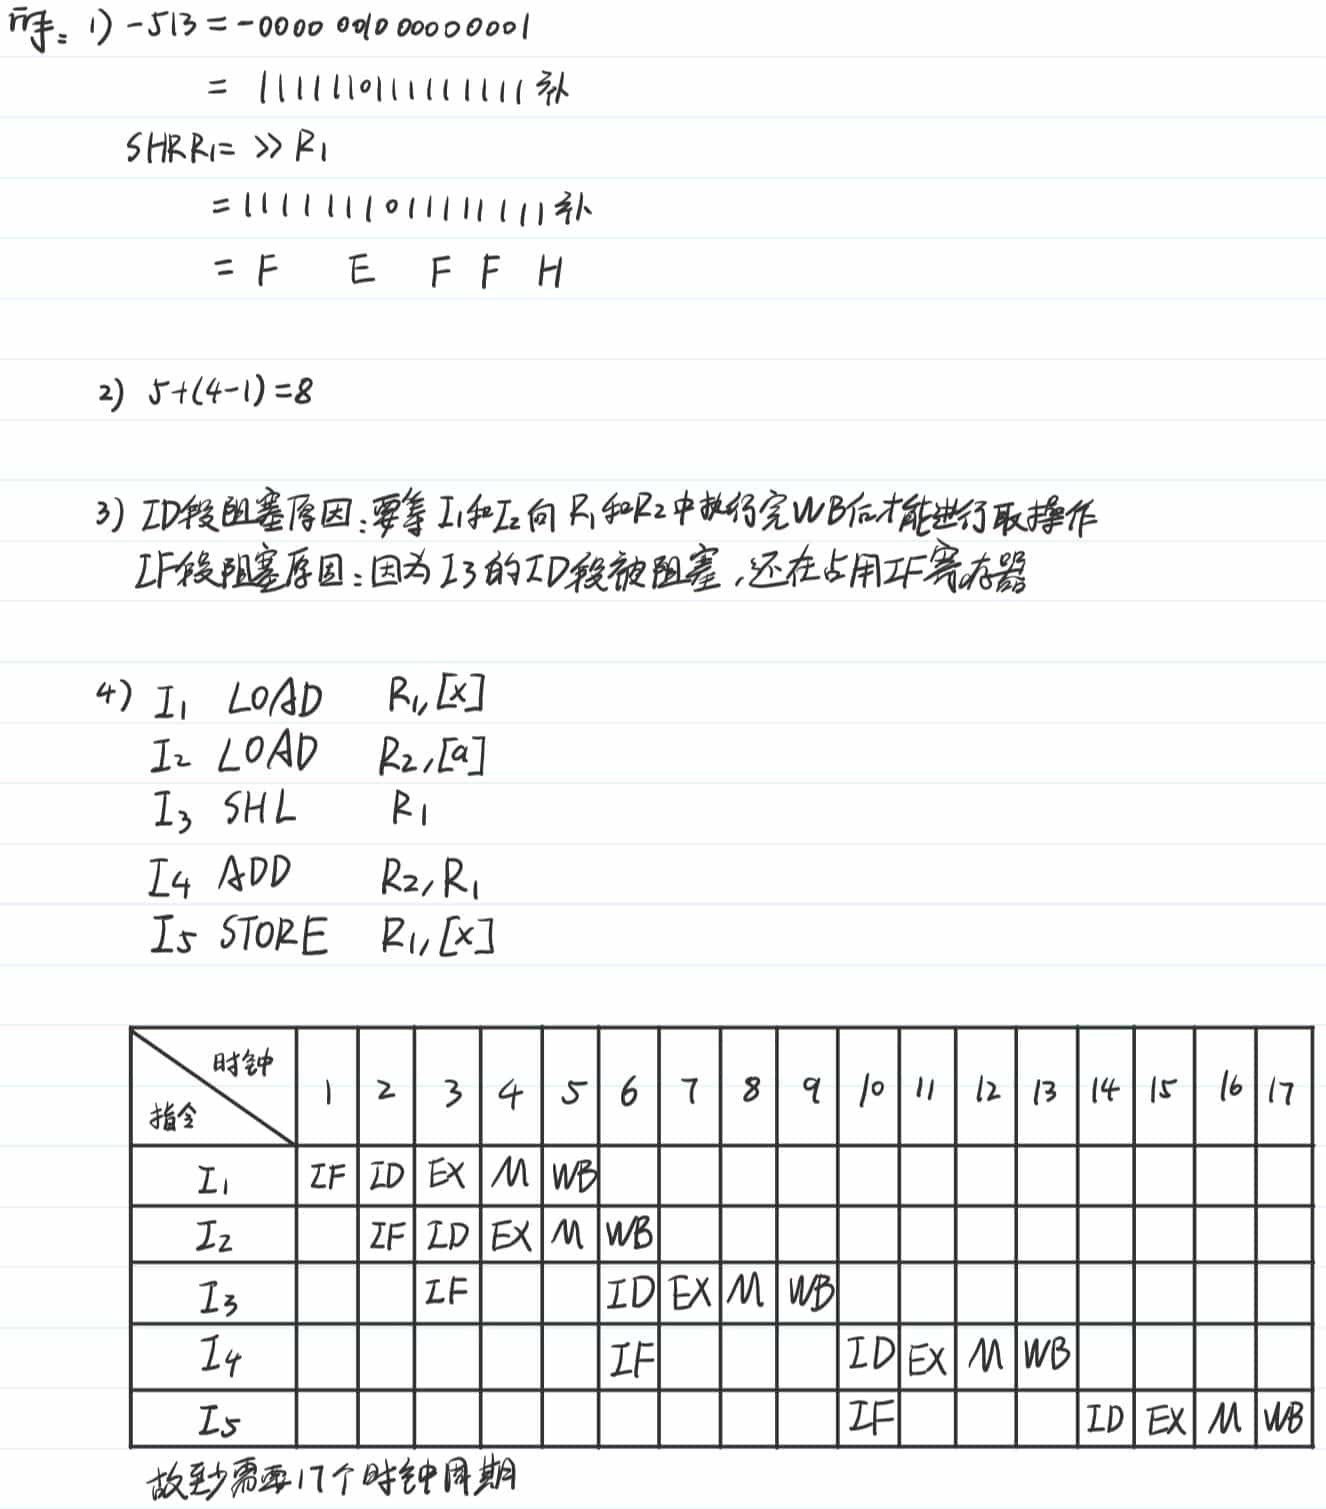 解: 1) -513 = -0000 0010 00000001
= 1111110111111111 补
SHRR1 = >> R1
= 1111111011111111 补
= F E F F H
2) 5+(4-1)=8
3) ID段阻塞原因:要等I1和I2向R1和R2中执行完WB后才能进行取操作
IF段阻塞原因:因为I3的ID段被阻塞,还在占用IF寄存器
4) I1 LOAD R1,[x]
I2 LOAD R2,[a]
I3 SHL R1
I4 ADD R2,R1
I5 STORE R1,[x]
时钟 指令 1 2 3 4 5 6 7 8 9 10 11 12 13 14 15 16 17
I1 IF ID EX M WB
I2 IF ID EX M WB
I3 IF ID EX M WB
I4 IF ID EX M WB
I5 IF ID EX M WB
故至少需要17个时钟周期